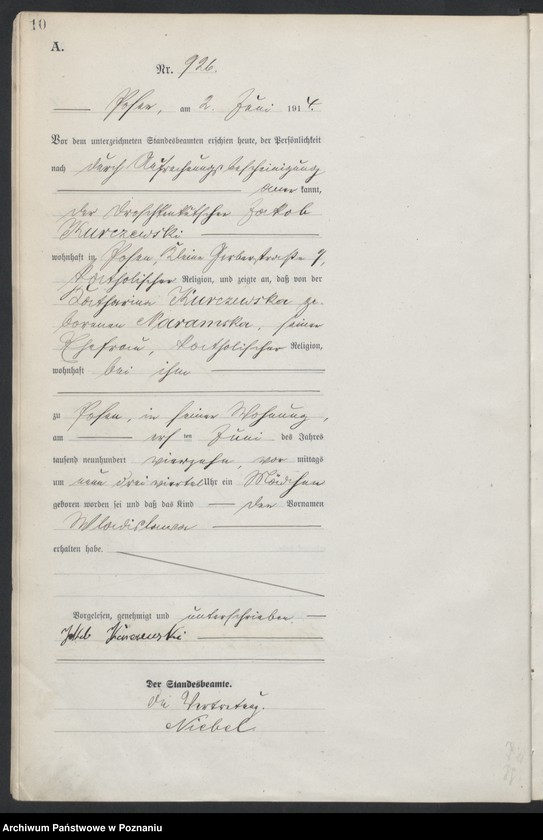 10
A.
Nr. 926.
Posen, am 2. Juni 1914.
Vor dem unterzeichneten Standesbeamten erschien heute, der Persönlichkeit
nach durch Aufrechnungsbescheinigung
anerkannt,
der Droschkenkutscher Jakob
Kurczewski
wohnhaft in Posen, Kleine Gerberstraße 9,
katholischer Religion, und zeigte an, daß von der
Katharina Kurczewska ge-
borenen Naramska, seiner
Ehefrau, katholischer Religion,
wohnhaft bei ihm
zu Posen, in seiner Wohnung,
am ersten Juni des Jahres
tausend neunhundert vierzehn, vor mittags
um neun dreiviertel Uhr ein Mädchen
geboren worden sei und daß das Kind den Vornamen
Wladislawa
erhalten habe.
Vorgelesen, genehmigt und unterschrieben
Kurczewski
Der Standesbeamte.
In Vertretung.
Niebel
Archiwum Państwowe w Poznaniu